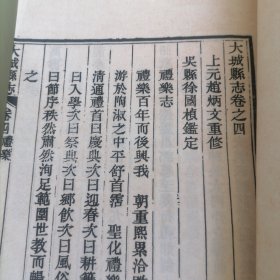 大城縣志卷之四
上元趙炳文重修
吳縣徐國楨鑑定
禮樂志
禮樂百年而後興我　朝重熙累洽
游於陶淑之中平舒首霑　聖化禮樂
清通禮首曰慶典次曰迎春次曰耕藉
曰入學次曰祭典次曰鄉飲次曰風俗
曰節序秩然肅然洵足範圍世教而轉
之
大城縣志
卷四禮樂